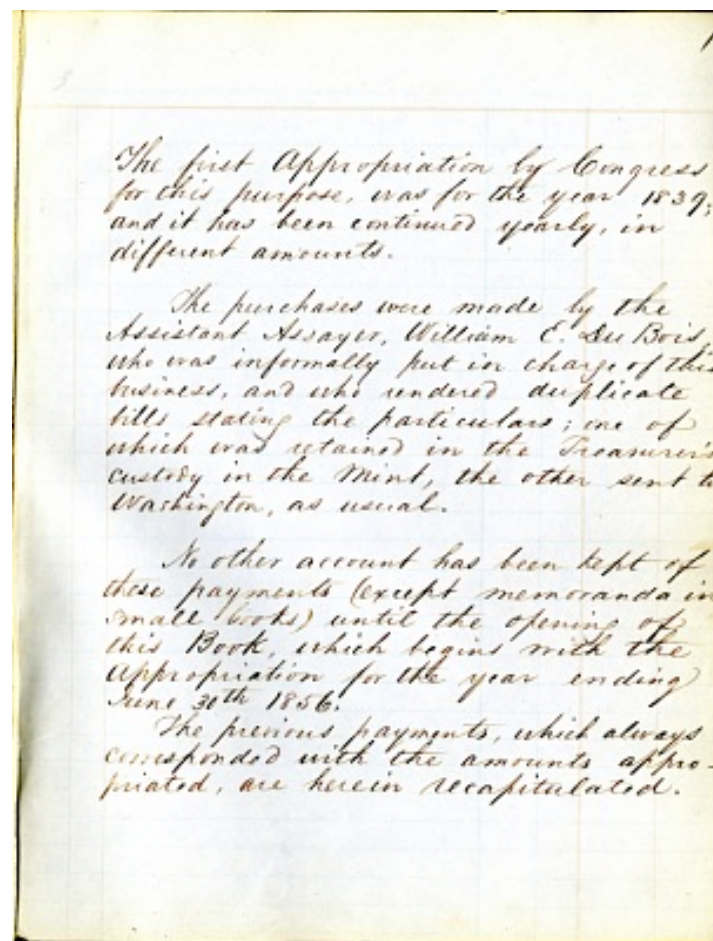 The first Appropriation by Congress
for this purpose, was for the year 1839;
and it has been continued yearly, in
different amounts.
The purchases were made by the
Assistant Assayer, William E. Du Bois,
who was informally put in charge of this
business, and who rendered duplicate
bills stating the particulars; one of
which was retained in the Treasurer's
custody in the Mint, the other sent to
Washington, as usual.
No other account has been kept of
these payments (except memoranda in
small books) until the opening of
this Book, which begins with the
Appropriation for the year ending
June 30th 1856.
The previous payments, which always
corresponded with the amounts appro-
priated, are herein recapitulated.